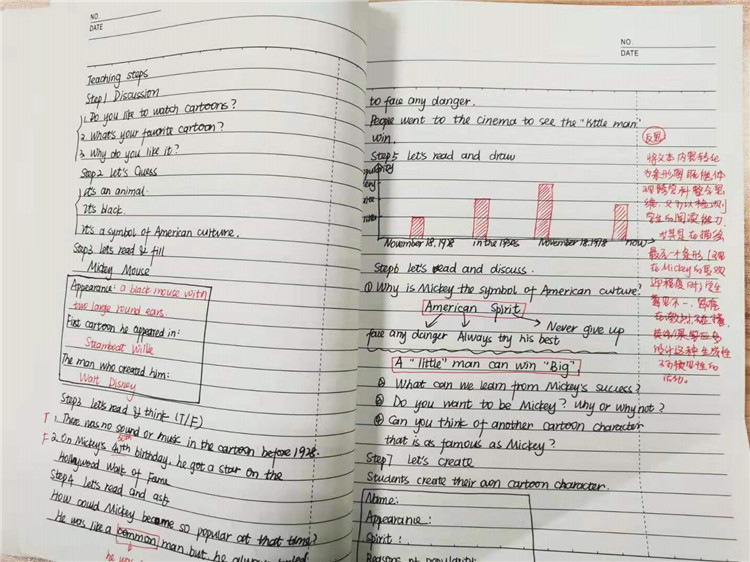 NO.
DATE
Teaching steps
Step 1 Discussion
1. Do you like to watch cartoons?
2. What's your favorite cartoon?
3. Why do you like it?
Step 2 Let's Guess
It's an animal.
It's black.
It's a symbol of American culture.
Step 3 Let's read & fill
Mickey Mouse
Appearance: a black mouse with
two large round ears.
First cartoon he appeared in:
Steamboat Willie
The man who created him:
Walt Disney
Step 3 Let's read & think (T/F)
T 1. There was no sound or music in the cartoon before 1928.
F 2. On Mickey's birthday, he got a star on the
Hollywood Walk of Fame
Step 4 Let's read and ask
How could Mickey become so popular at that time?
He was like a common man but he always
he was
NO.
DATE
to face any danger.
People went to the cinema to see the "little man"
win.
Step 5 Let's read and draw
November 18, 1928 in the 1930s November 18, 1978 now
Step 6 Let's read and discuss.
① Why is Mickey the symbol of American culture?
American Spirit
Never give up
face any danger Always try his best
A "little" man can win "Big"
② What can we learn from Mickey's success?
③ Do you want to be Mickey? Why or why not?
④ Can you think of another cartoon character
that is as famous as Mickey?
Step 7 Let's create
Students create their own cartoon character.
Name:
Appearance:
Spirit:
Reasons of popularity
反思
将文本内容转化
为条形图既能体
现跨学科整合思
维，又可以检测
学生的阅读能力
最后一个条形
在Mickey的受欢
迎程度时，学生